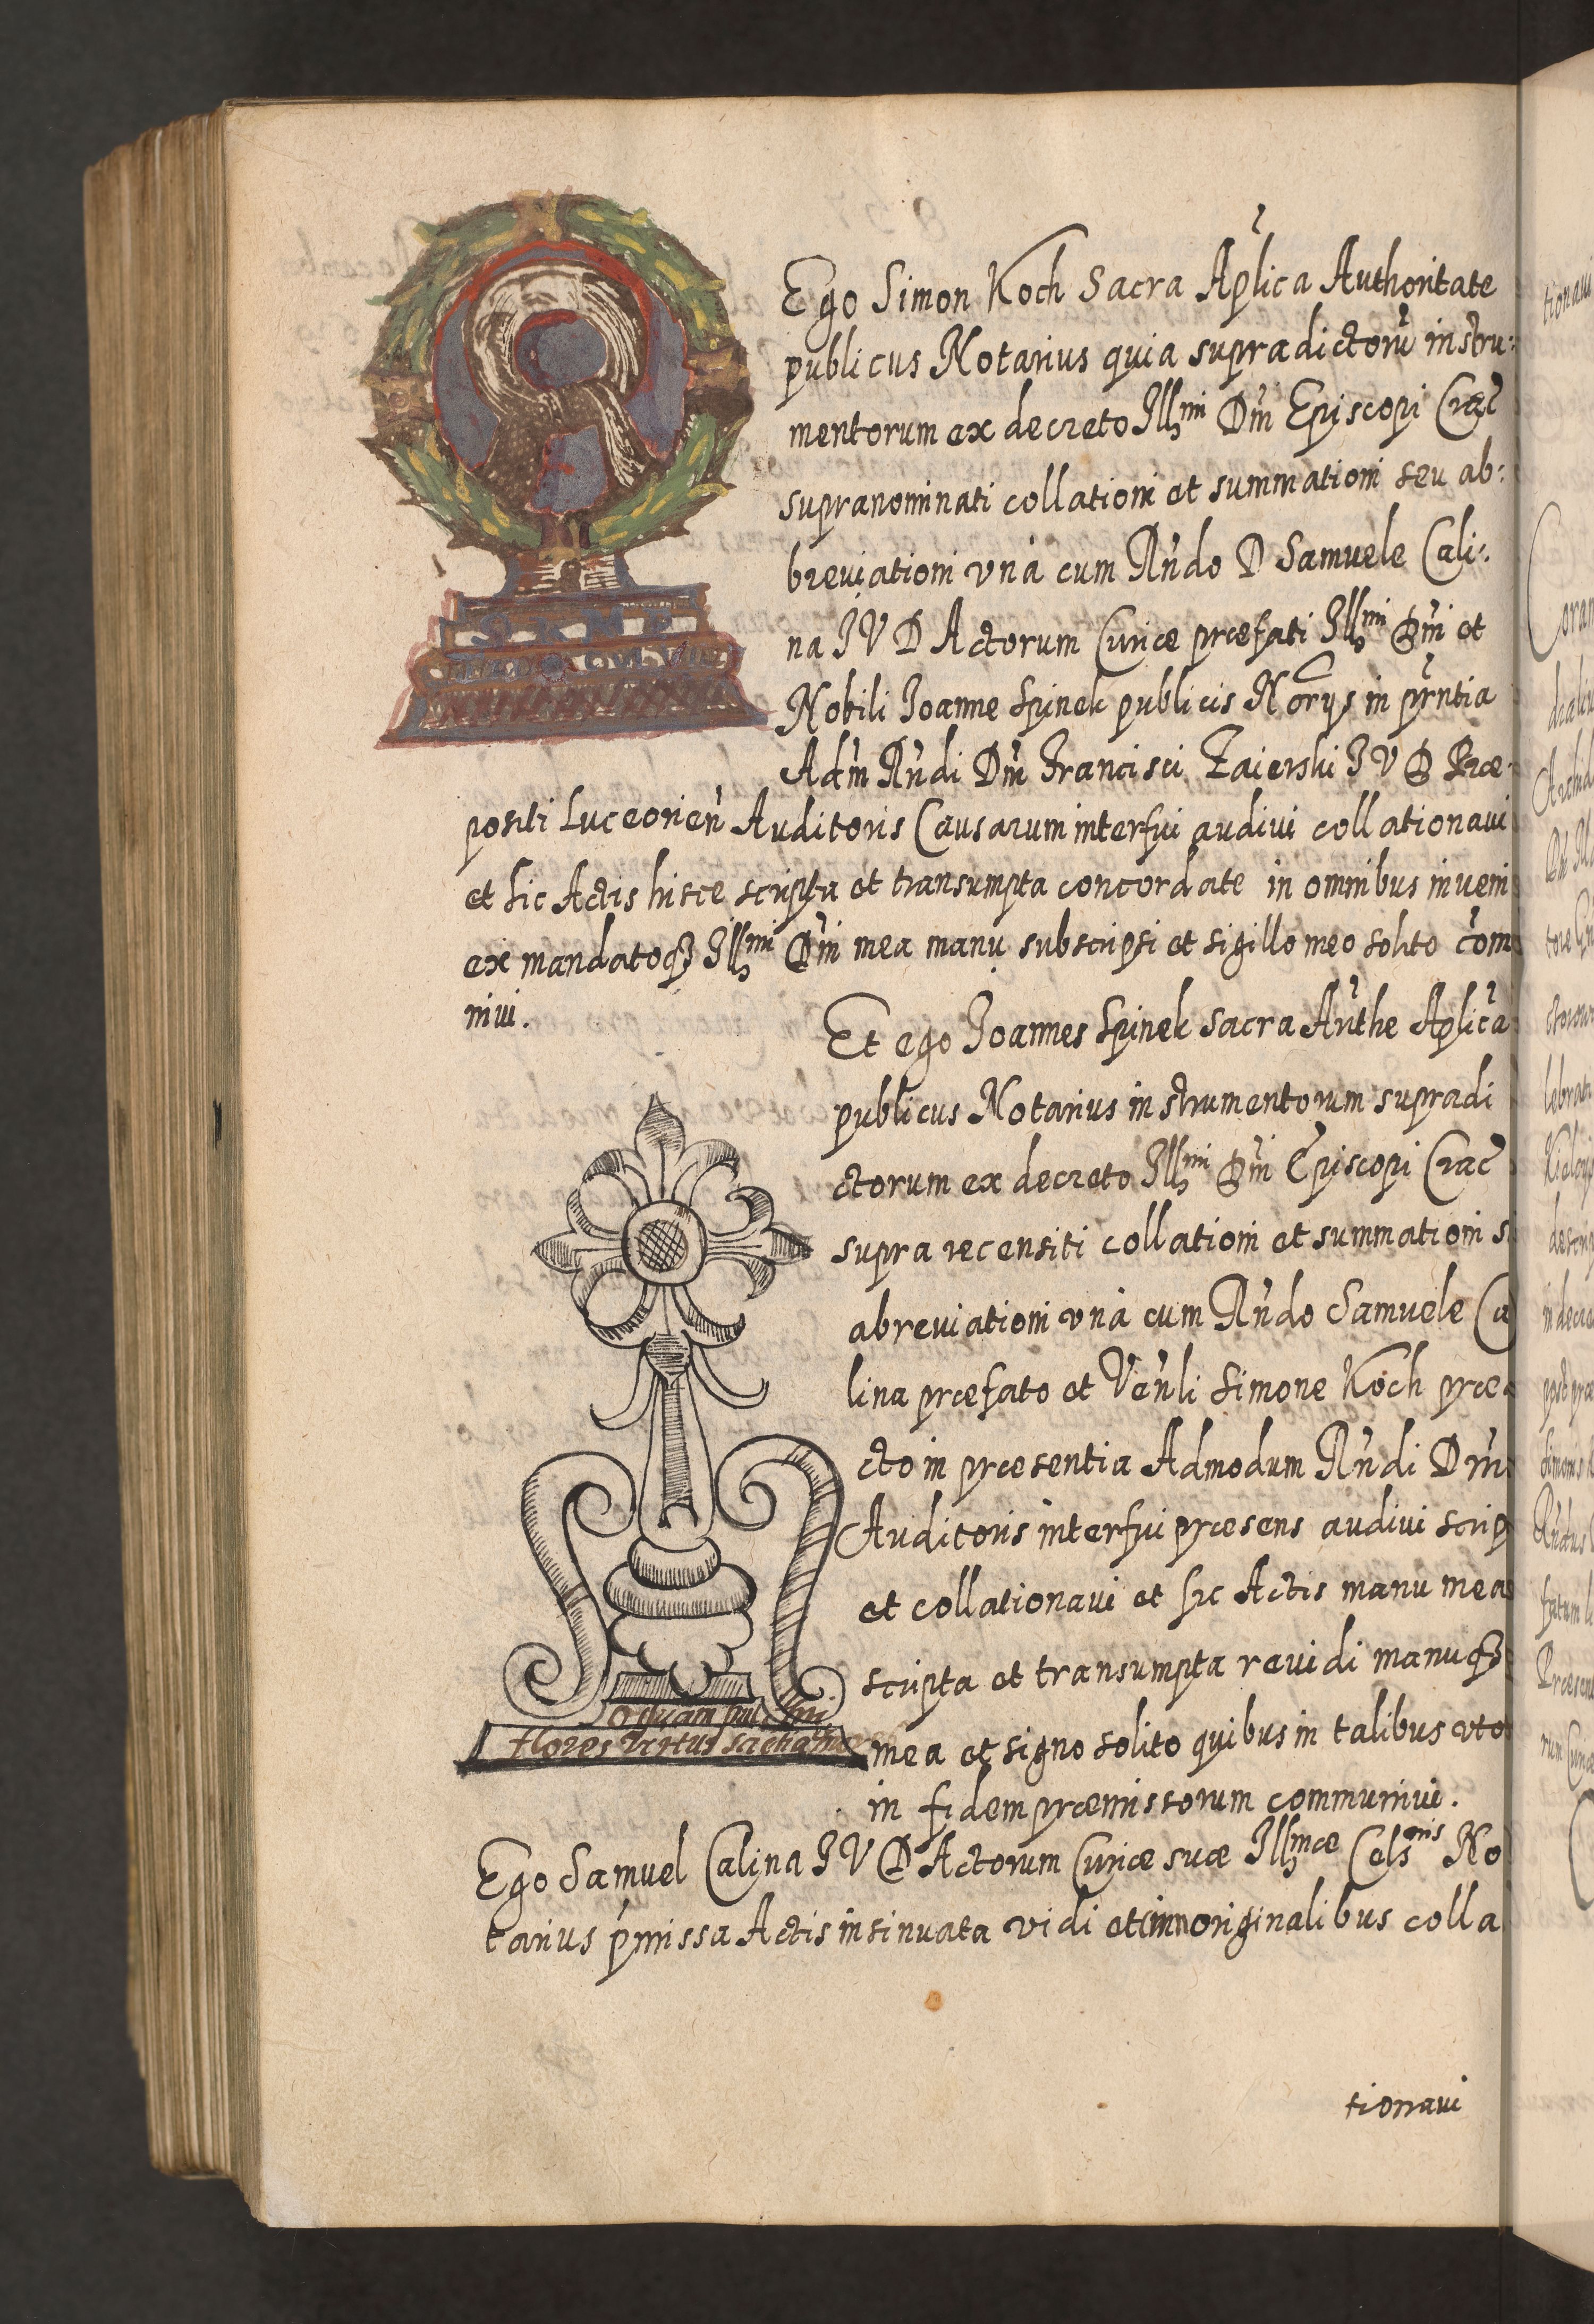 Ego Simon Koch Sacra Aplica Authoritate
publicus Notarius quia supradictorũ instru:
mentorum ex decreto Illmi Dñi Episcopi Crac
supranominati collationi et summationi seu ab:
breviationi vnà cum Rñdo D Samuele Cali:
na I V D Actorum Curiæ præfati Illmi Dñi et
Nobili Joanne Spinek publicis Norijs in prñtia
Adm Rñdi Dñi Francisci Zaierski I V D Præ:
positi Luceorieñ Auditoris Causarum interfui audivi collationavi
et sic Actis hisce scripta et transumpta concordate in omnibus inveni
ex mandatoq3 Illmi Dñi mea manu subscripsi et sigillo meo solito com
nivi.
Et ego Joannes Spinek Sacra Authe Aplica
publicus Notarius instrumentorum supradi
ctorum ex decreto Illmi Dñi Episcopi Crac
supra recensiti collationi et summationi
abreviationi vnà cum Rñdo Samuele Ca
lina præfato et Venli Simone Koch præ
cto in præsentia Admodum Rñdi Dñi
Auditoris interfui præsens audivi scrip
et collationavi et sic Actis manu mea
scripta et transumpta revidi manuq3
mea et signo solito quibus in talibus vto
in fidem præmissorum communivi.
O quam
flores virtus
Ego Samuel Calina I V D Actorum Curiæ suæ Illmæ Celsnis No
tarius pmissa Actis insinuata vidi et originalibus colla
tionavi